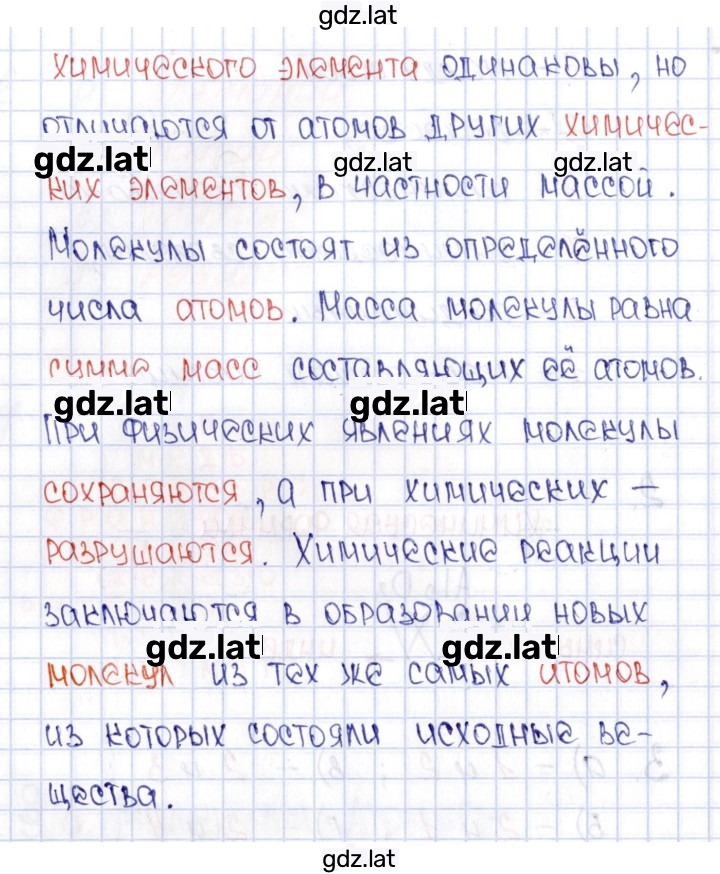 gdz.lat
химического элемента одинаковы, но
отличаются от атомов других химичес-
gdz.lat gdz.lat gdz.lat
ких элементов, в частности массой.
Молекулы состоят из определённого
числа атомов. Масса молекулы равна
сумме масс составляющих её атомов.
gdz.lat gdz.lat
При физических явлениях молекулы
сохраняются, а при химических —
разрушаются. Химические реакции
заключаются в образовании новых
gdz.lat gdz.lat
молекул из тех же самых атомов,
из которых состояли исходные ве-
щества.
gdz.lat